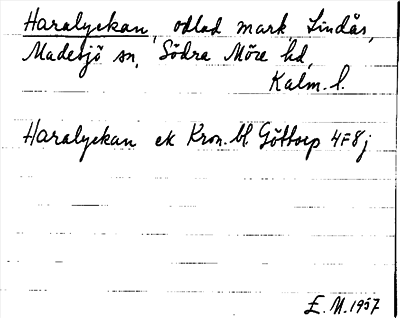 Haralyckan, odlad mark, Lindås,
Madesjö sn, Södra Möre hd,
Kalm. l.
Haralyckan ek Kron. bl. Göttorp 4F8j
E. M. 1957